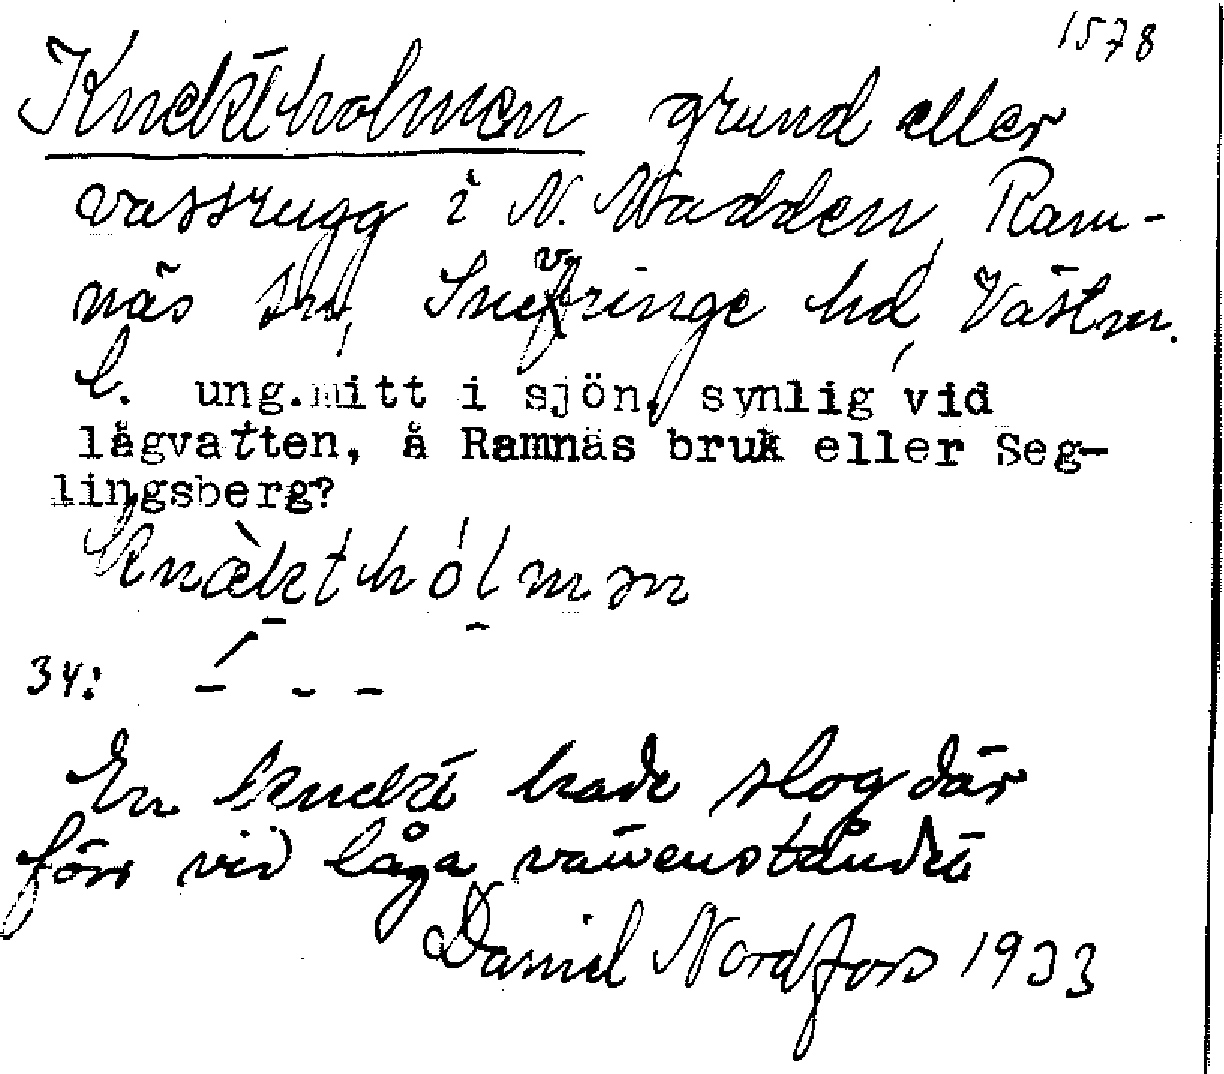 1578
Knektholmen grund eller
vassrugg i N. Nadden, Ram-
näs sn, Snevringe hd, Västm.
l. ung.mitt i sjön, synlig vid
lågvatten, å Ramnäs bruk eller Seg-
lingsberg?
knæ̀kthólmən
34: – – –
En knekt hade slog där
förr vid låga vattenståndet
Daniel Nordfors 1933